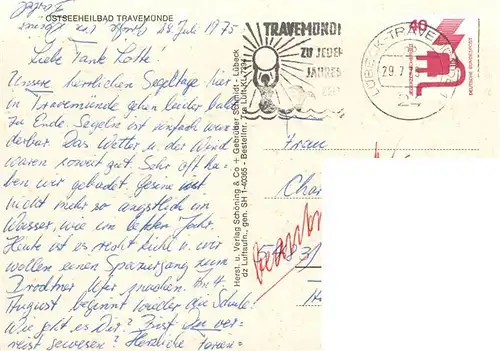 OSTSEEHEILBAD TRAVEMÜNDE
28. Juli 1975
Liebe Tante Lotte
Unsere herrlichen Segeltage hier
in Travemünde gehen leider bald
zu Ende. Segeln ist einfach wun
derbar. Das Wetter u. der Wind
waren soweit gut. Sehr oft ha-
ben wir gebadet. Gesine ist
nicht mehr so ängstlich im
Wasser, wie im letzten Jahr.
Heute ist es recht kühl u. wir
wollen einen Spaziergang zum
Brodtner Ufer machen. Am 4.
August beginnt wieder die Schule.
Wie geht es Dir? Bist Du ver-
reist gewesen? Herzliche
Herst. u. Verlag Schöning & Co + Gebrüder Schmidt - Lübeck
dz Luftaufn., gen. SH 1-40095 - Bestellnr. Tra
TRAVEMÜND
ZU JEDER
JAHRES
ZEIT
LÜBECK-TRAVEMÜNDE 1
29.7.75
24
40
DEUTSCHE BUNDESPOST
Frau